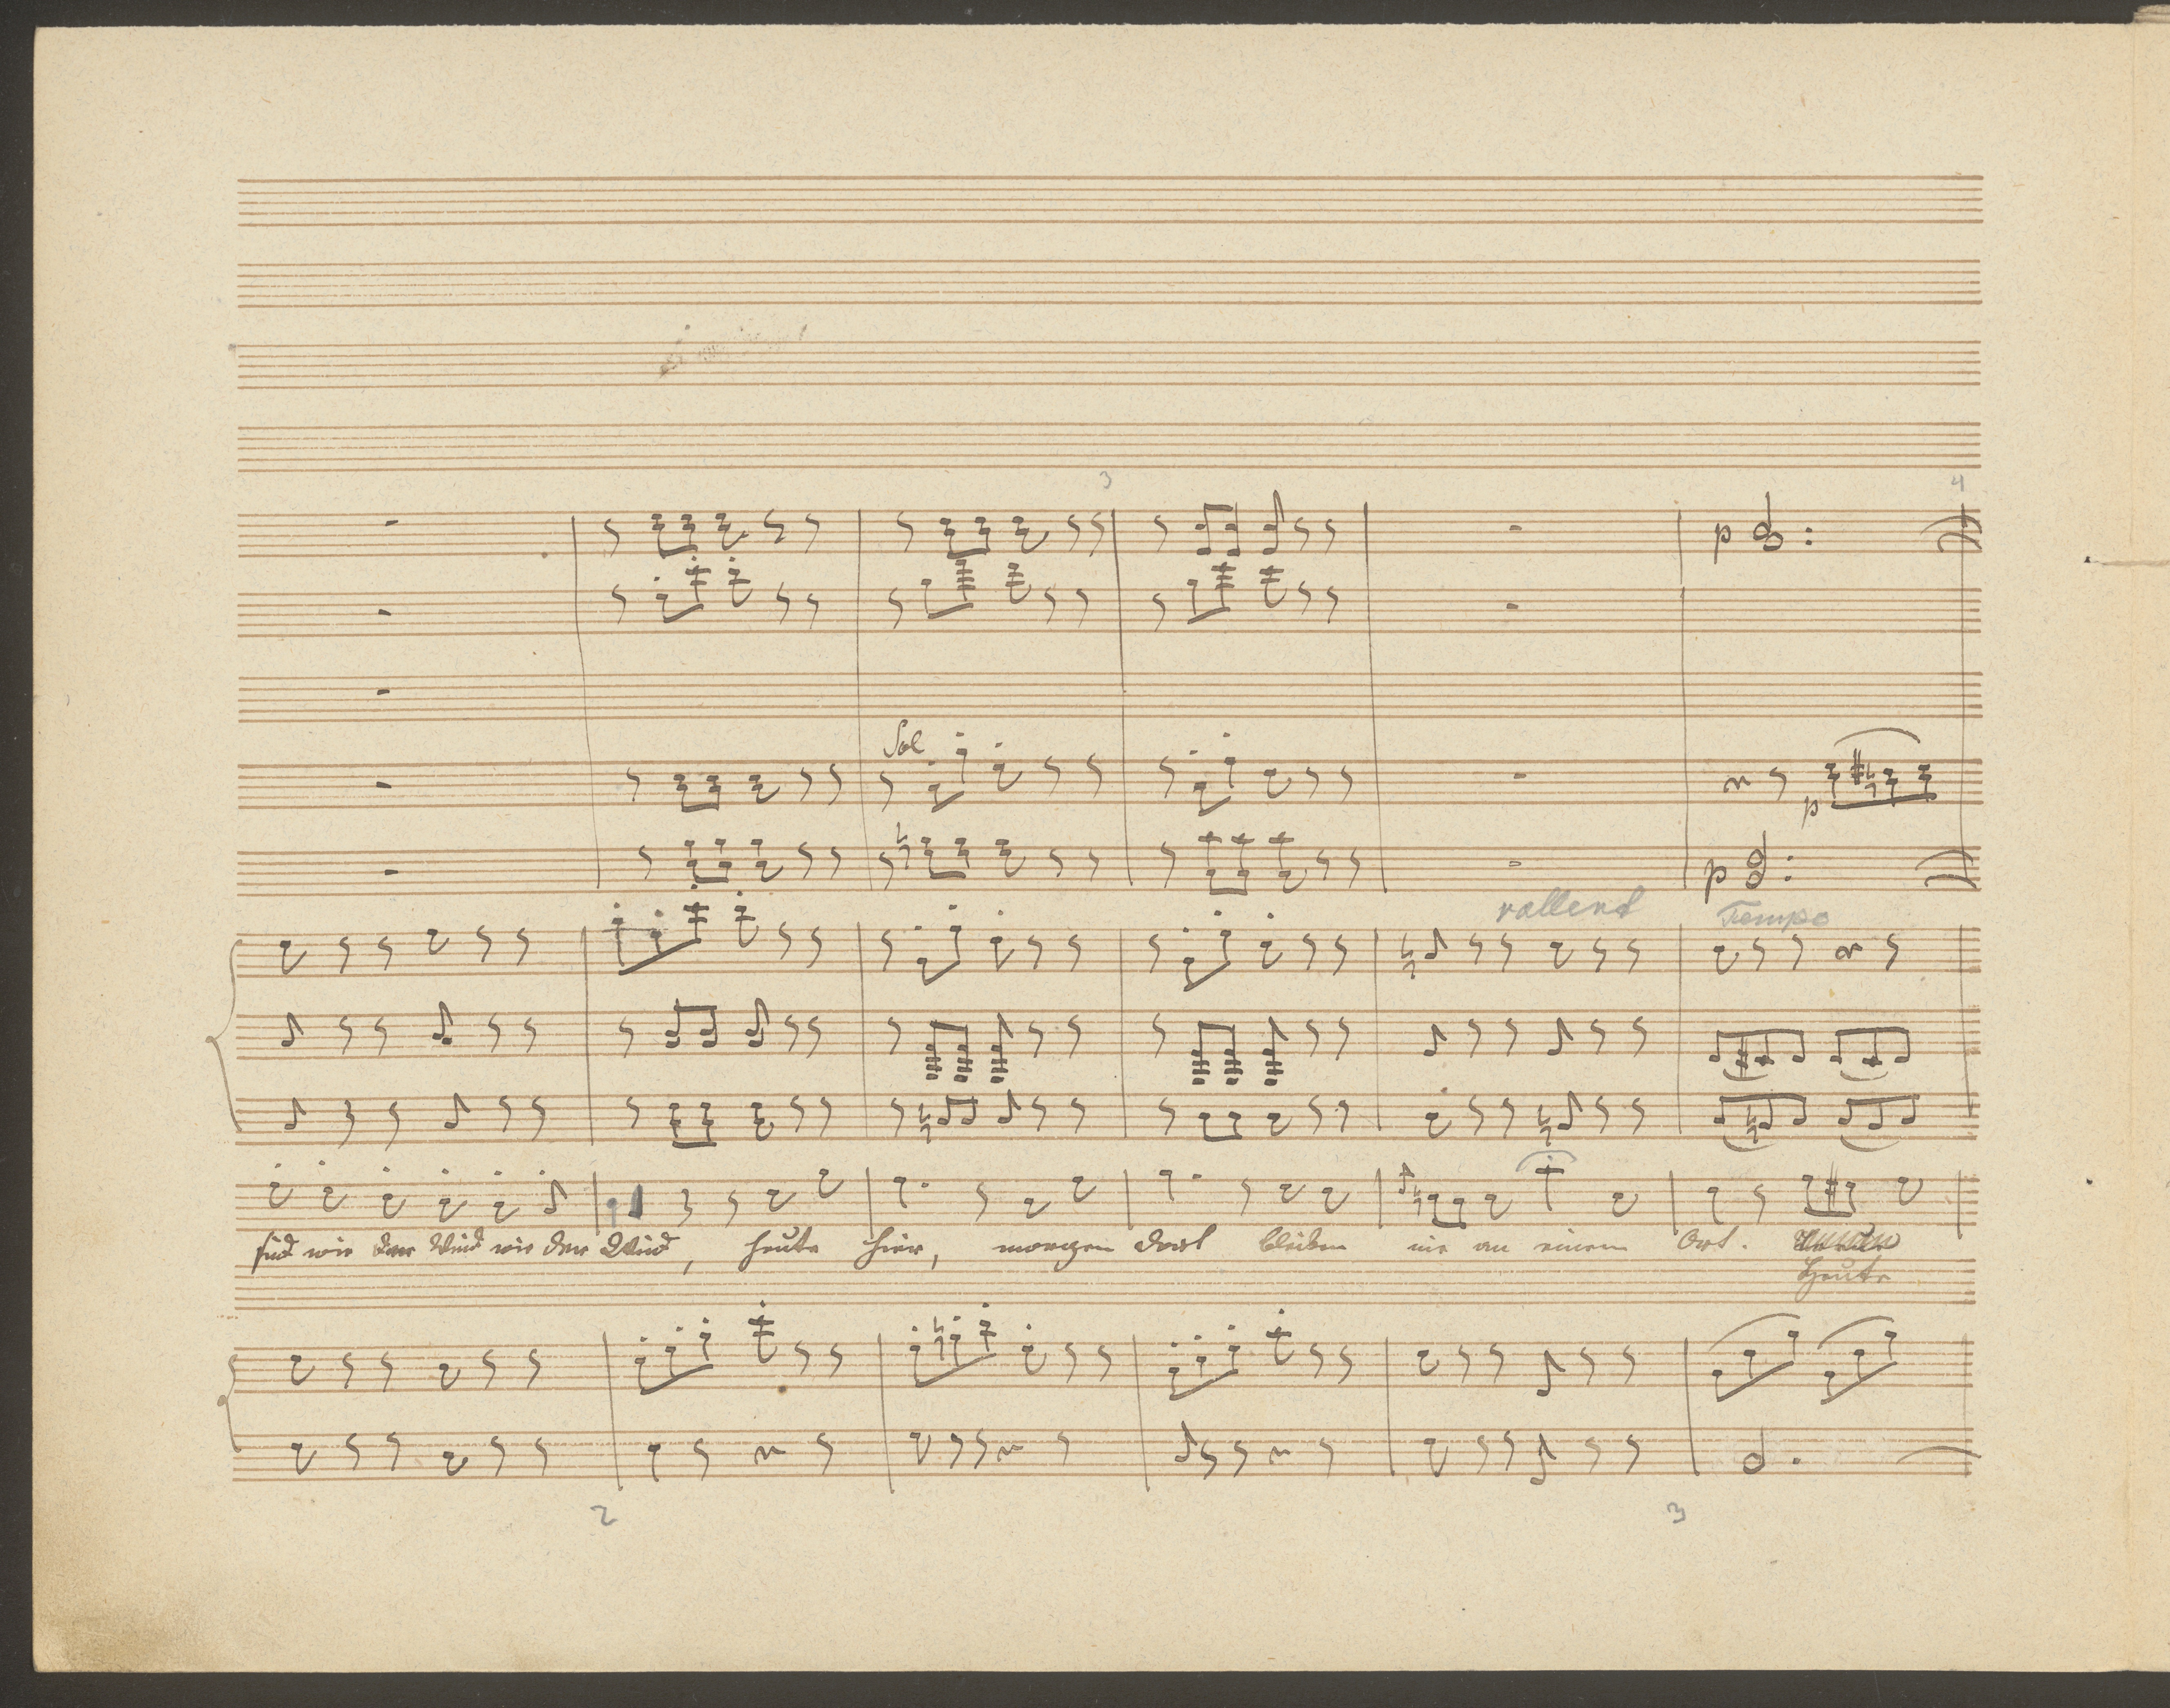 3 4
p
Sol
p
p
rallent Tempo
sind wie der Wind wie der Wind, heute hier, morgen dort bleiben nie an einem Ort.
Heute
2 3